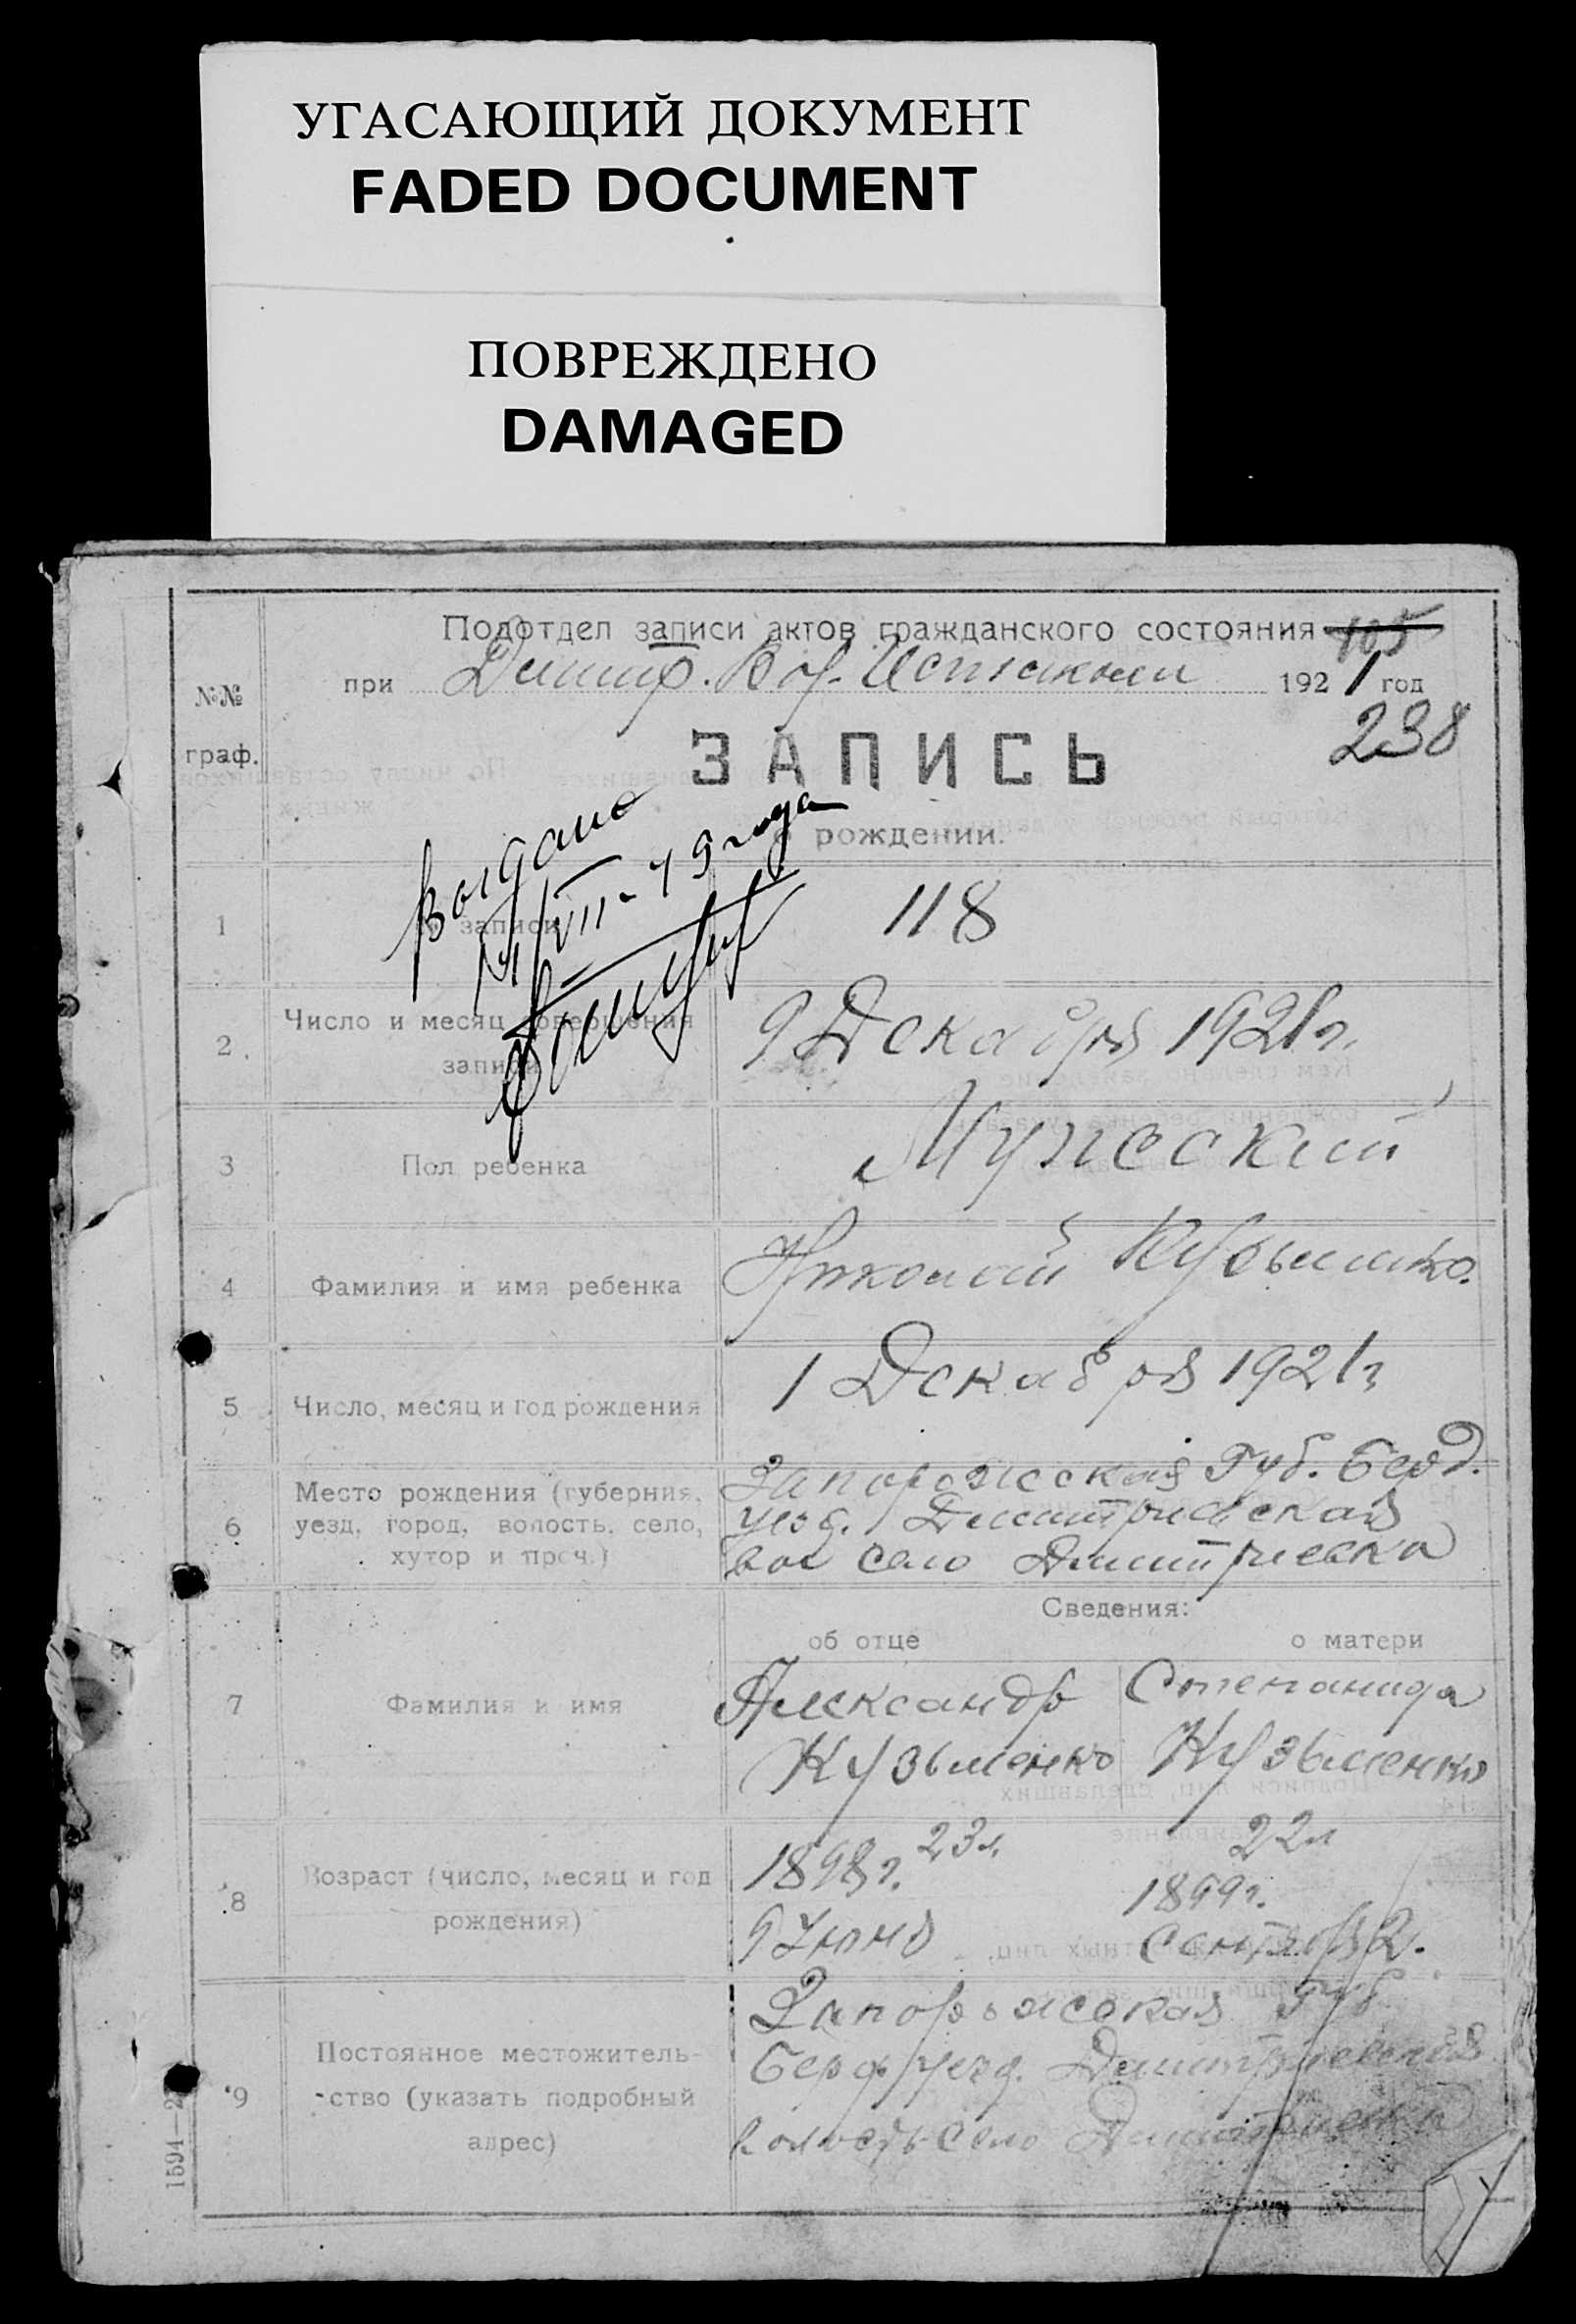 УГАСАЮЩИЙ ДОКУМЕНТ
FADED DOCUMENT
ПОВРЕЖДЕНО
DAMAGED
Подотдел записи актов гражданского состояния 105
при Димитр. Вол. Исполкоми 1921 год
238
№№
граф.
ЗАПИСЬ
о рождении.
Выдано
VII-49 года
1 записи 118
2 Число и месяц совершения
записи
9 Декабря 1921 г.
3 Пол ребенка Мужеский
4 Фамилия и имя ребенка Николай Кузьменко.
5 Число, месяц и год рождения 1 Декабря 1921 г
6 Место рождения (губерния,
уезд, город, волость, село,
хутор и проч.)
Запорожеская Губ. Берд.
уезд. Димитриевская
вол село Димитриевка
Сведения:
об отце о матери
7 Фамилия и имя
Александр Степанида
Кузьменко Кузьменко
8 Возраст (число, месяц и год
рождения)
1898 г. 23 л. 22 л
1899 г.
9 Июня Сентября 2.
9 Постоянное местожитель-
ство (указать подробный
адрес)
Запорожеская Губ
Берд уезд. Димитриевская
волость село Димитриевка